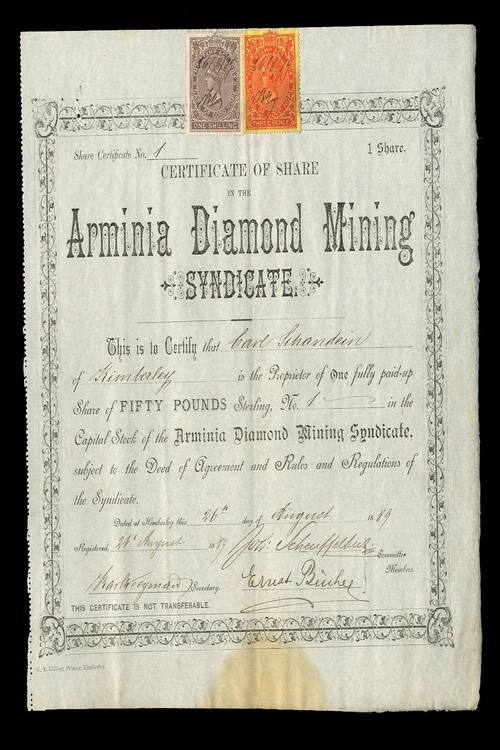 ONE SHILLING THREE PENCE
Share Certificate No. 1 1 Share.
CERTIFICATE OF SHARE
IN THE
Arminia Diamond Mining
SYNDICATE.
This is to Certify that Carl Schandein
of Kimberley is the Proprietor of One fully paid-up
Share of FIFTY POUNDS Sterling, No. 1 in the
Capital Stock of the Arminia Diamond Mining Syndicate,
subject to the Deed of Agreement and Rules and Regulations of
the Syndicate.
Dated at Kimberley this 26th day of August 1889
Registered, 26th August 1889
Committee
Members.
Secretary. Ernst
THIS CERTIFICATE IS NOT TRANSFERABLE.
Printer, Kimberley.